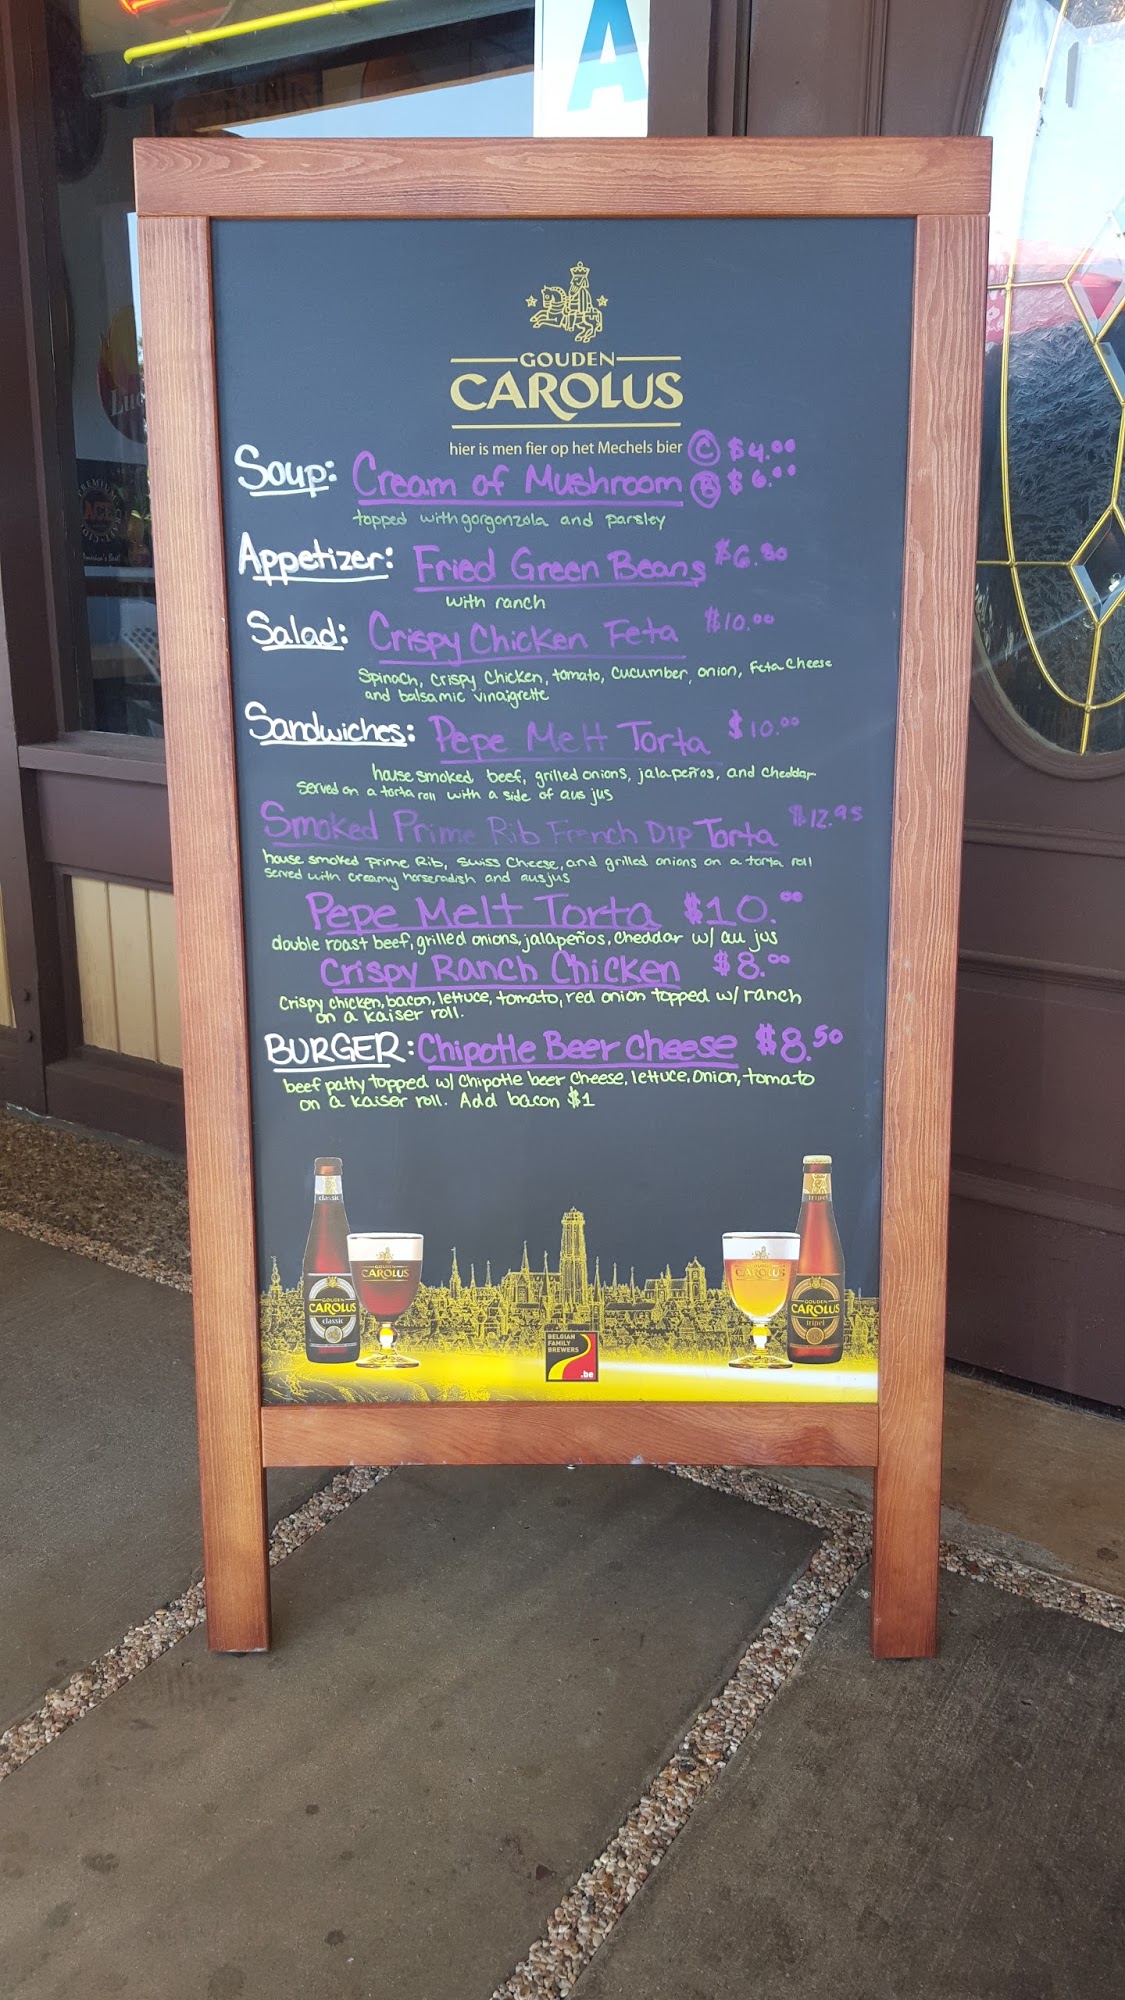 A
GOUDEN
CAROLUS
hier is men fier op het Mechels bier Ⓒ $4.00
Soup: Cream of Mushroom Ⓑ $6.00
topped with gorgonzola and parsley
Appetizer: Fried Green Beans
with ranch
Salad: Crispy Chicken Feta $10.00
Spinach, crispy chicken, tomato, cucumber, onion, Feta Cheese
and balsamic vinaigrette
Sandwiches: Pepe Melt Torta $10.00
house smoked beef, grilled onions, jalapeños, and cheddar
served on a torta roll with a side of aus jus
Smoked Prime Rib French Dip Torta $12.95
house smoked Prime Rib, Swiss Cheese, and grilled onions on a torta roll
served with creamy horseradish and ausjus
Pepe Melt Torta $10.00
double roast beef, grilled onions, jalapeños, cheddar w/ au jus
Crispy Ranch Chicken $8.00
Crispy chicken, bacon, lettuce, tomato, red onion topped w/ ranch
on a kaiser roll.
BURGER: Chipotle Beer Cheese $8.50
beef patty topped w/ Chipotle beer cheese, lettuce, onion, tomato
on a kaiser roll. Add bacon $1
classic
tripel
GOUDEN
CAROLUS
GOUDEN
CAROLUS
GOUDEN
CAROLUS
classic
GOUDEN
CAROLUS
tripel
BELGIAN
FAMILY
BREWERS
.be